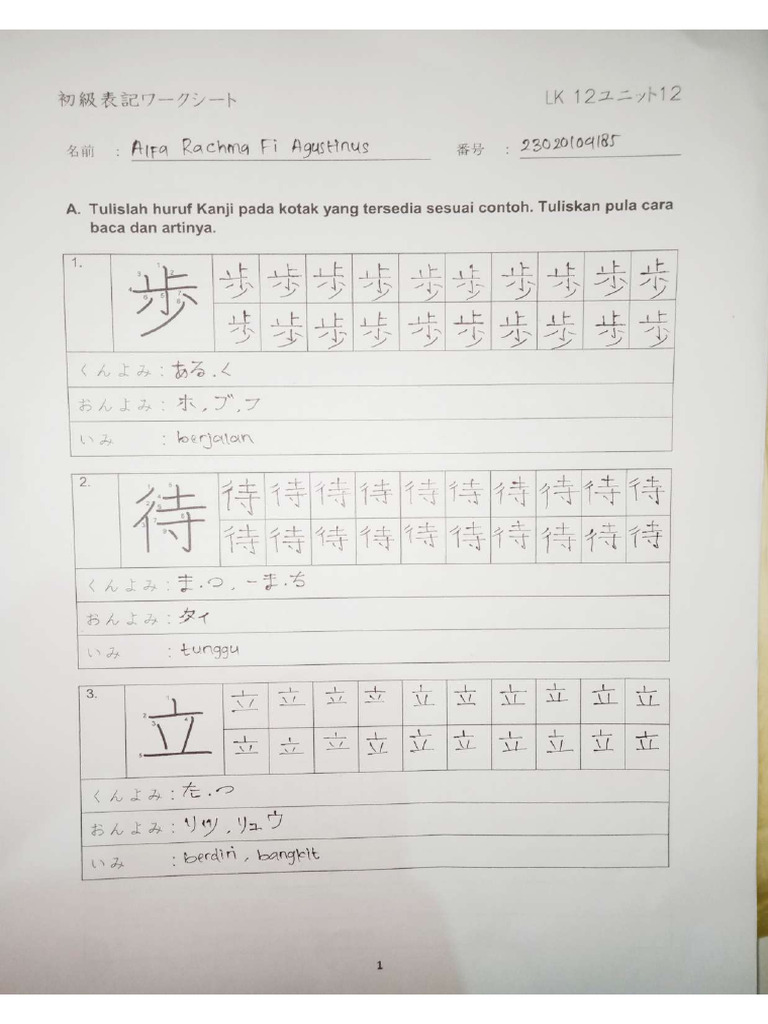 初級表記ワークシート LK 12ユニット12
名前 : Alfa Rachma Fi Agustinus 番号 : 23020104185
A. Tulislah huruf Kanji pada kotak yang tersedia sesuai contoh. Tuliskan pula cara
baca dan artinya.
1. 歩 歩 歩 歩 歩 歩 歩 歩 歩 歩 歩
歩 歩 歩 歩 歩 歩 歩 歩 歩 歩
くんよみ : ある.く
おんよみ : ホ, ブ, フ
いみ : berjalan
2. 待 待 待 待 待 待 待 待 待 待 待
待 待 待 待 待 待 待 待 待 待
くんよみ : ま.つ, -ま.ち
おんよみ : タイ
いみ : tunggu
3. 立 立 立 立 立 立 立 立 立 立 立
立 立 立 立 立 立 立 立 立 立
くんよみ : た.つ
おんよみ : リツ, リュウ
いみ : berdiri, bangkit
1